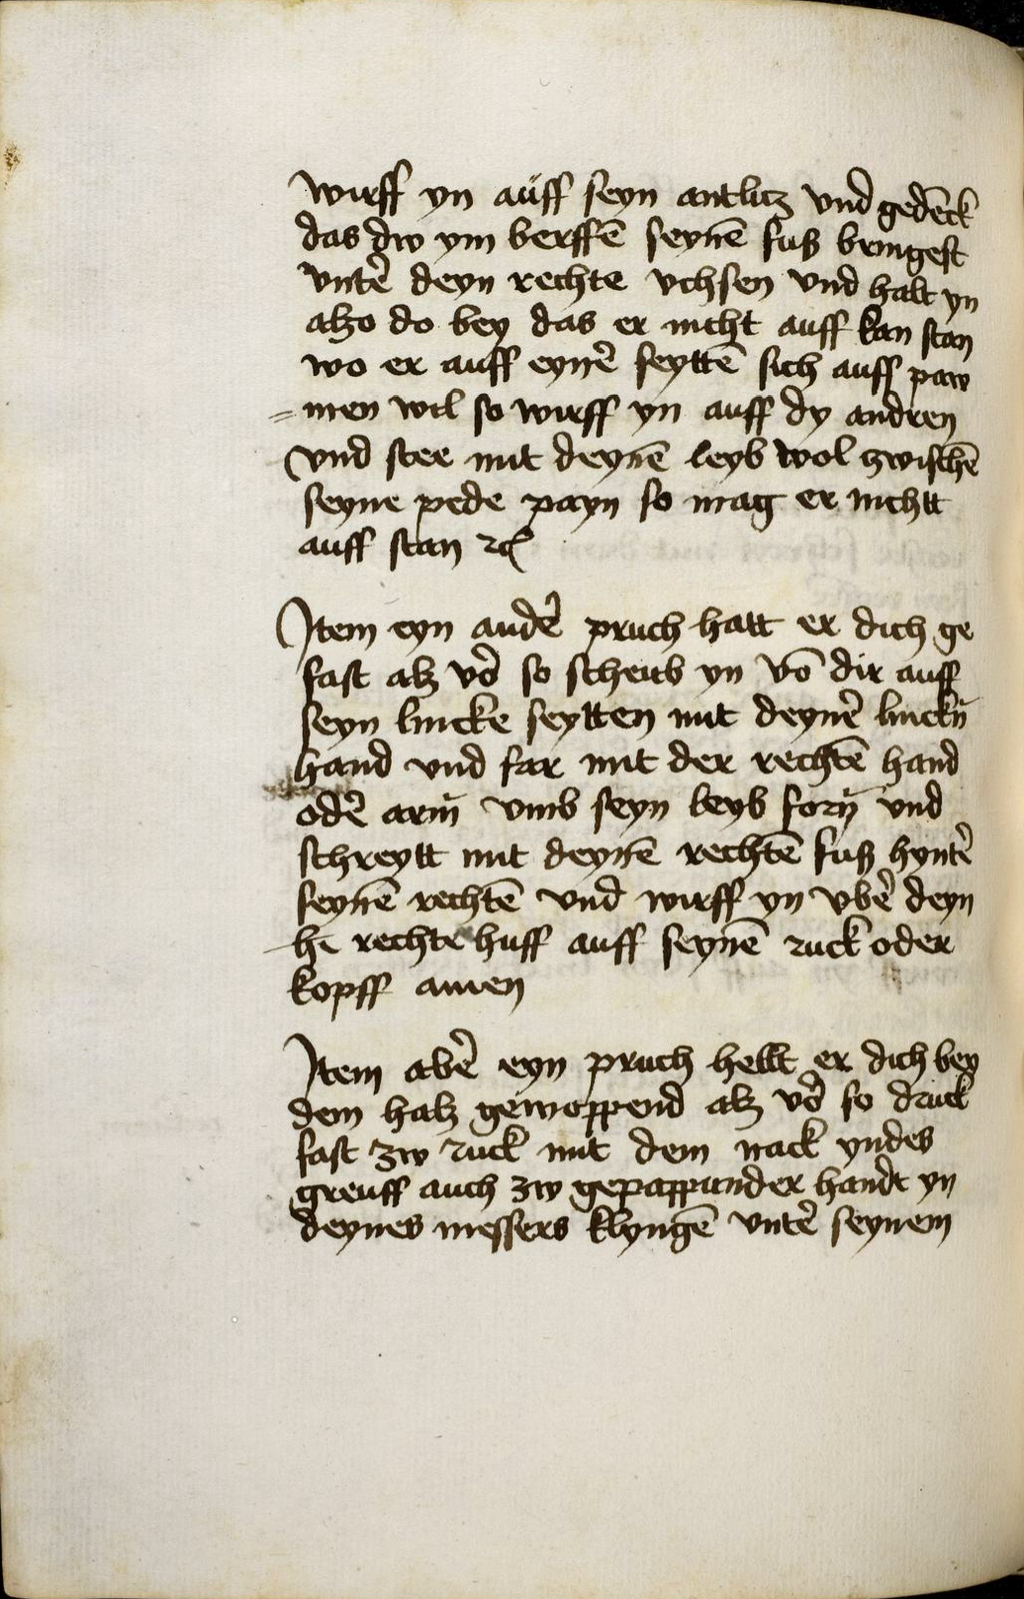 wirff yn aüff seyn antlitz vnd gedēck
das dw ym berffē seynē fuß bringest
vntē deyn rechte vchsen vnd halt yn
alzo do bey das er nicht auff kan stan
wo er auff eynē seyttē sich auff paw
=men wil so wirff yn auff dy andren
vnd stee mit deynē leyb wol zwischē
seyne pede payn so mag er nichtt
auff stan ꝛc
Item eyn andē pruch hatt er dich ge
fast alz vō so scheub yn vō dir auff
seyn lincke seytten mit deynē linckn̄
hand vnd far mit der rechtē hand
odē arm̄ vmb seyn leyb forn̄ vnd
schreytt mit deynē rechtē fuß hyntē
seynē rechtē vnd wirff yn vbē deyn
he rechte huff auff seynē ruck oder
kopff amen
Item abē eyn pruch hellt er dich bey
dem halz gewoppend alz vō so druck
fast zw ruck mit dem nack yndes
greuff auch zw gepappunder handt yn
deynes messers klyngē vntē seynem